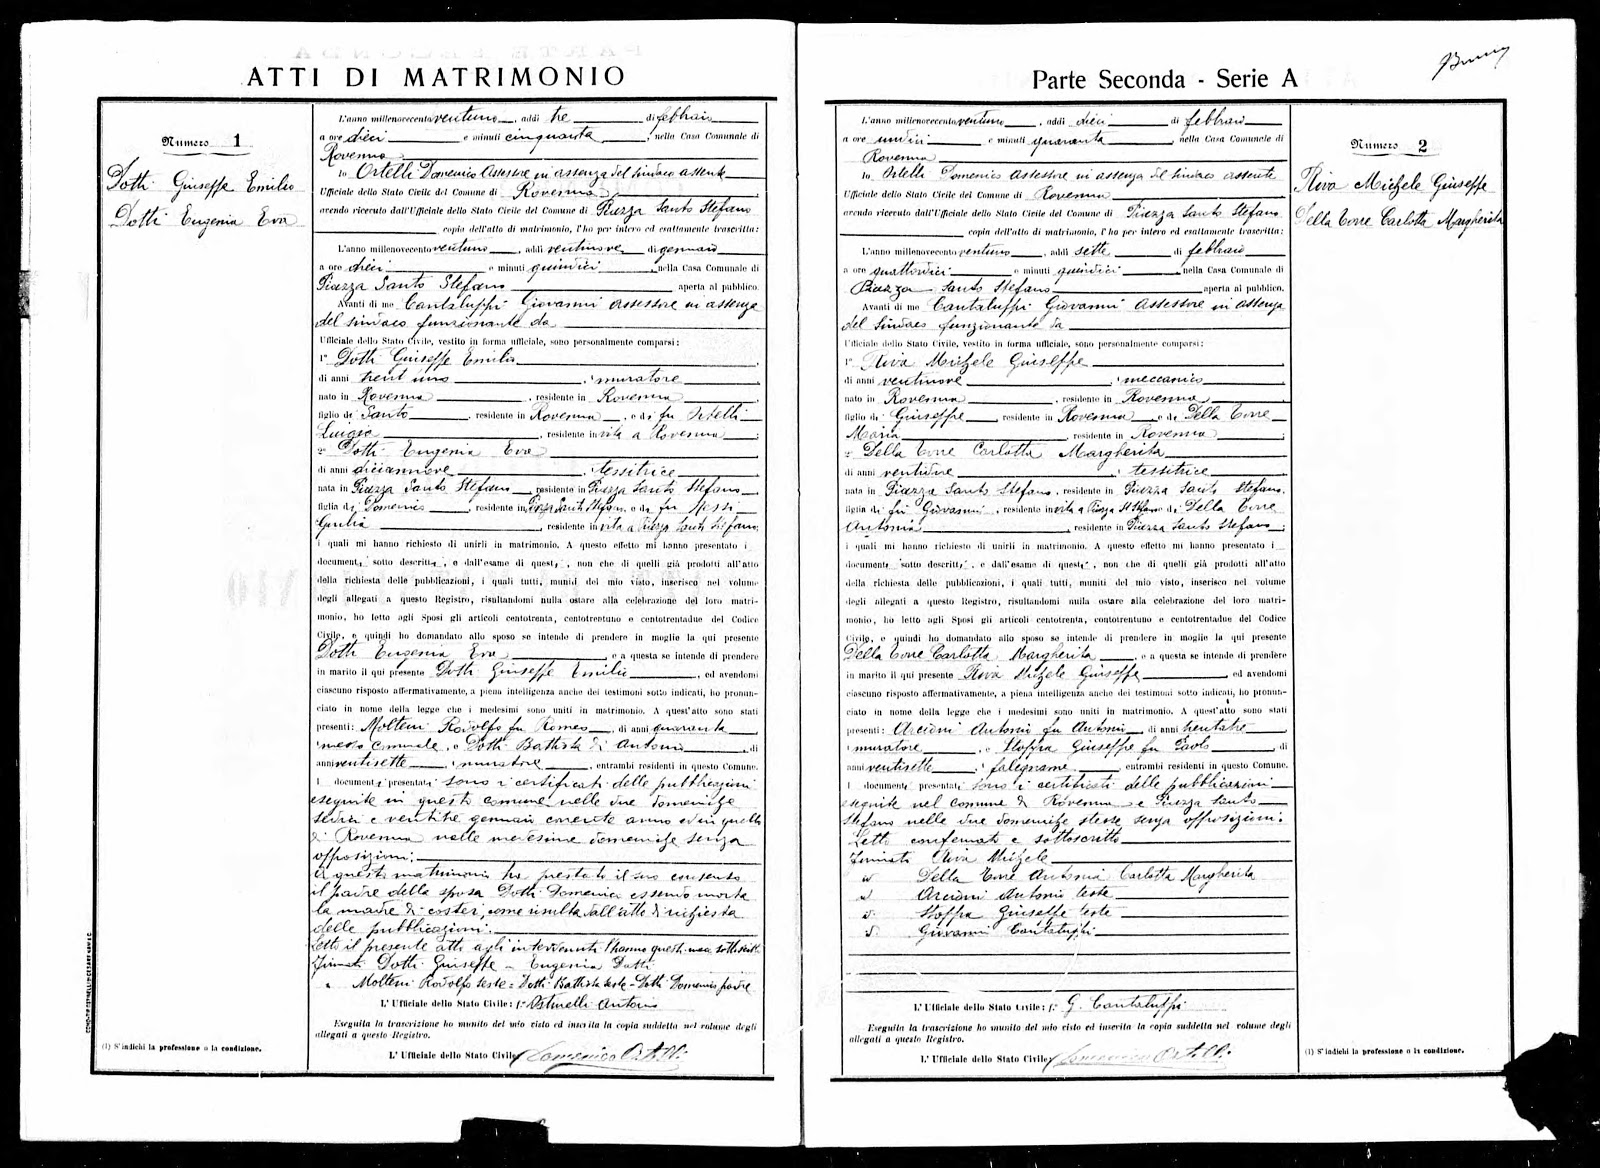 ATTI DI MATRIMONIO
Numero 1
Dotti Giuseppe Emilio
Dotti Eugenia Eva
L'anno millenovecento ventuno, addì tre di febbraio
a ore dieci e minuti cinquanta, nella Casa Comunale di
Rovenna
Io Ortelli Domenico Assessore in assenza del sindaco assente
Ufficiale dello Stato Civile del Comune di Rovenna
avendo ricevuto dall'Ufficiale dello Stato Civile del Comune di Piazza Santo Stefano
copia dell'atto di matrimonio, l'ho per intero ed esattamente trascritta:
L'anno millenovecento ventuno, addì ventinove di gennaio
a ore dieci e minuti quindici, nella Casa Comunale di
Piazza Santo Stefano aperta al pubblico.
Avanti di me Cantaluppi Giovanni assessore in assenza
del sindaco funzionante da
Ufficiale dello Stato Civile, vestito in forma ufficiale, sono personalmente comparsi:
1º Dotti Giuseppe Emilio
di anni trent'uno, muratore
nato in Rovenna, residente in Rovenna
figlio di Santo, residente in Rovenna, e di fu Ortelli
Luigia, residente in vita a Rovenna;
2º Dotti Eugenia Eva
di anni diciannove, tessitrice
nata in Piazza Santo Stefano, residente in Piazza Santo Stefano
figlia di Domenico, residente in Piazza Santo Stefano e di fu
Giulia, residente in vita a Piazza Santo Stefano;
i quali mi hanno richiesto di unirli in matrimonio. A questo effetto mi hanno presentato i
documenti sotto descritti, e dall'esame di questi, non che di quelli già prodotti all'atto
della richiesta delle pubblicazioni, i quali tutti, muniti del mio visto, inserisco nel volume
degli allegati a questo Registro, risultandomi nulla ostare alla celebrazione del loro matri-
monio, ho letto agli Sposi gli articoli centotrenta, centotrentuno e centotrentadue del Codice
Civile, e quindi ho domandato allo sposo se intende di prendere in moglie la qui presente
Dotti Eugenia Eva e a questa se intende di prendere
in marito il qui presente Dotti Giuseppe Emilio, ed avendomi
ciascuno risposto affermativamente, a piena intelligenza anche dei testimoni sotto indicati, ho pronun-
ciato in nome della legge che i medesimi sono uniti in matrimonio. A quest'atto sono stati
presenti: Molteni Rodolfo fu Romeo, di anni quaranta
messo comunale, e Dotti Battista di Antonio, di
anni ventisette, muratore, entrambi residenti in questo Comune.
I documenti presentati sono i certificati delle pubblicazioni
eseguite in questo comune nelle due domeniche
sedici e ventitre gennaio corrente anno ed in quello
di Rovenna nelle medesime domeniche senza
opposizioni.
A questo matrimonio ha prestato il suo consenso
il padre della sposa Dotti Domenico essendo morta
la madre di costei, come risulta dall'atto di richiesta
delle pubblicazioni.
Letto il presente atto agli intervenuti l'hanno questi meco sottoscritto
Firmati Dotti Giuseppe - Eugenia Dotti
" Molteni Rodolfo teste - Dotti Battista teste - Dotti Domenico padre
L'Ufficiale dello Stato Civile: Fº Ostinelli Antonio
Eseguita la trascrizione ho munito del mio visto ed inserita la copia suddetta nel volume degli
allegati a questo Registro.
L'Ufficiale dello Stato Civile Domenico Ortelli
(1) S'indichi la professione o la condizione.
Parte Seconda - Serie A
L'anno millenovecento ventuno, addì dieci di febbraio
a ore undici e minuti quaranta, nella Casa Comunale di
Rovenna
Io Ortelli Domenico assessore in assenza del sindaco assente
Ufficiale dello Stato Civile del Comune di Rovenna
avendo ricevuto dall'Ufficiale dello Stato Civile del Comune di Piazza Santo Stefano
copia dell'atto di matrimonio, l'ho per intero ed esattamente trascritta:
L'anno millenovecento ventuno, addì sette di febbraio
a ore quattordici e minuti quindici, nella Casa Comunale di
Piazza Santo Stefano aperta al pubblico.
Avanti di me Cantaluppi Giovanni assessore in assenza
del Sindaco funzionante da
Ufficiale dello Stato Civile, vestito in forma ufficiale, sono personalmente comparsi:
1º Riva Michele Giuseppe
di anni ventinove, meccanico
nato in Rovenna, residente in Rovenna
figlio di Giuseppe, residente in Rovenna e di Della Torre
Maria, residente in Rovenna;
2º Della Torre Carlotta Margherita
di anni ventidue, tessitrice
nata in Piazza Santo Stefano, residente in Piazza Santo Stefano
figlia di fu Giovanni, residente in vita a Piazza St Stefano di Della Torre
Antonia residente in Piazza Santo Stefano;
i quali mi hanno richiesto di unirli in matrimonio. A questo effetto mi hanno presentato i
documenti sotto descritti, e dall'esame di questi, non che di quelli già prodotti all'atto
della richiesta delle pubblicazioni, i quali tutti, muniti del mio visto, inserisco nel volume
degli allegati a questo Registro, risultandomi nulla ostare alla celebrazione del loro matri-
monio, ho letto agli Sposi gli articoli centotrenta, centotrentuno e centotrentadue del Codice
Civile, e quindi ho domandato allo sposo se intende di prendere in moglie la qui presente
Della Torre Carlotta Margherita, e a questa se intende di prendere
in marito il qui presente Riva Michele Giuseppe, ed avendomi
ciascuno risposto affermativamente, a piena intelligenza anche dei testimoni sotto indicati, ho pronun-
ciato in nome della legge che i medesimi sono uniti in matrimonio. A quest'atto sono stati
presenti: Arcioni Antonio fu Antonio di anni trentatre
muratore, e Stoppa Giuseppe fu Paolo di
anni ventisette, falegname, entrambi residenti in questo Comune.
I documenti presentati sono i certificati delle pubblicazioni
eseguite nel comune di Rovenna e Piazza Santo
Stefano nelle due domeniche stesse senza opposizioni.
Letto confermato e sottoscritto
Firmati Riva Michele
id Della Torre Antonia Carlotta Margherita
id Arcioni Antonio teste
id Stoppa Giuseppe teste
id Giovanni Cantaluppi
L'Ufficiale dello Stato Civile: Fº G. Cantaluppi
Eseguita la trascrizione ho munito del mio visto ed inserita la copia suddetta nel volume degli
allegati a questo Registro.
L'Ufficiale dello Stato Civile Domenico Ortelli
Numero 2
Riva Michele Giuseppe
Della Torre Carlotta Margherita
(1) S'indichi la professione o la condizione.